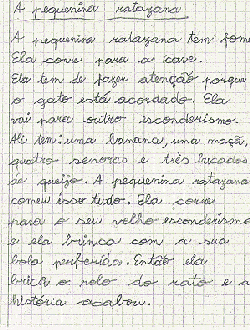 A pequenina ratazana
A pequenina ratazana tem fome
Ela corre para a cave.
Ela tem de fazer atenção porque
o gato está acordado. Ela
vai para outro esconderismo.
Ali tem: uma banana, uma maçã,
quatro senoras e três bucados
de queijo. A pequenina ratazana
comeu isso tudo. Ela corre
para o seu velho esconderismo
e ela brinca com a sua
bola preferida. Então ela
o rolo do rato e a
história acabou.